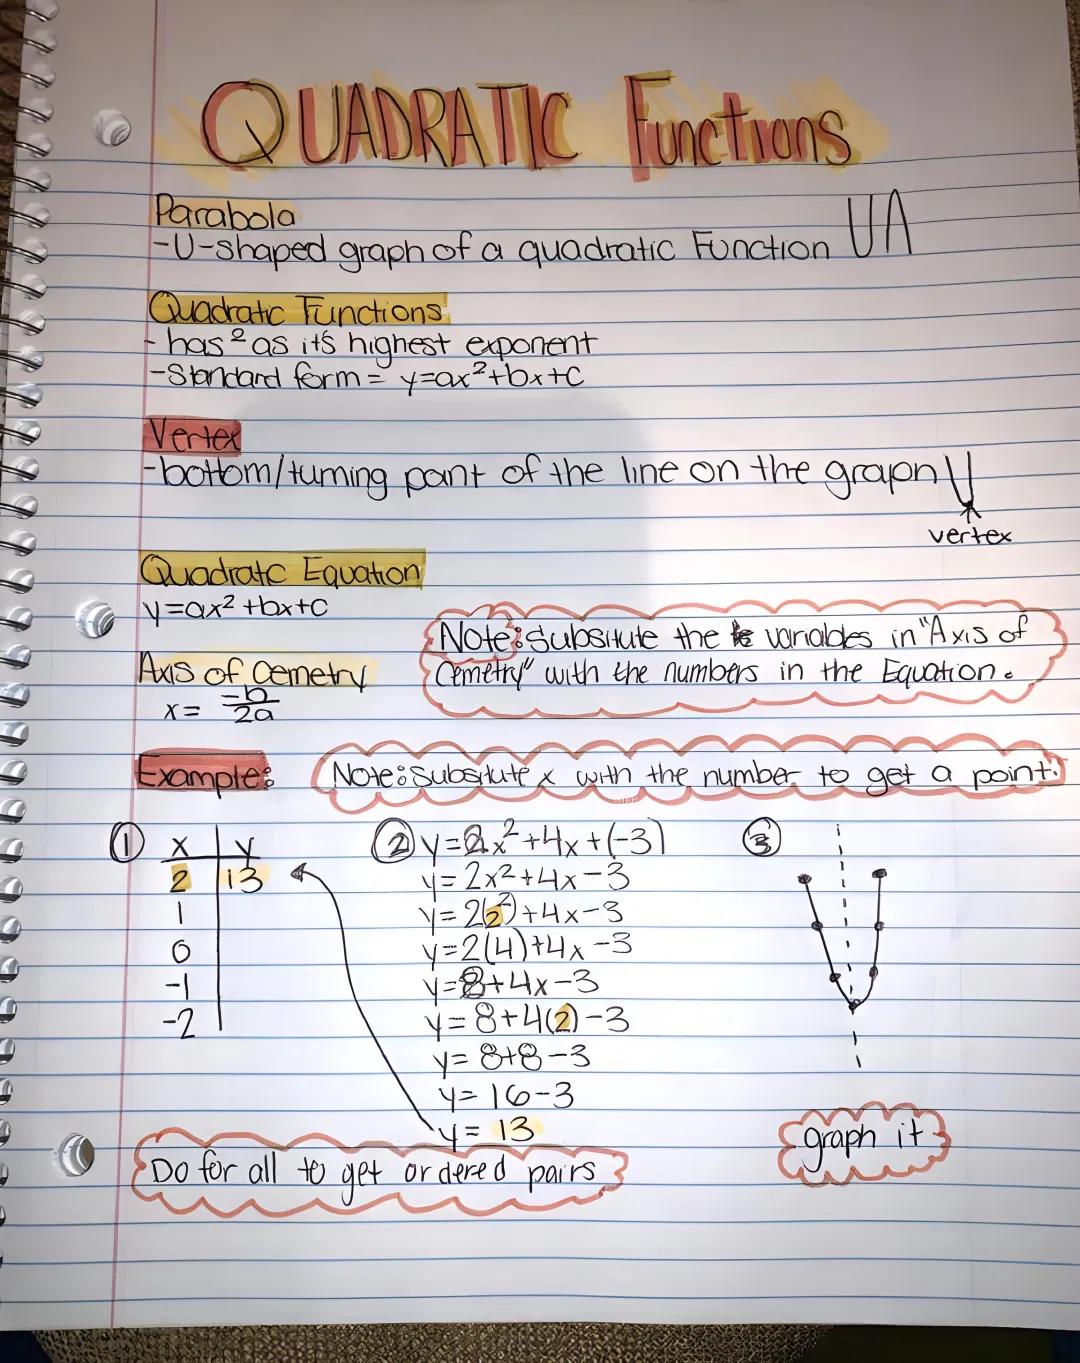 QUADRATIC Functions
Parabola
-U-shaped graph of a quadratic Function UA
Quadratic Functions
- has ² as it's highest exponent
-Standard form = y=ax²+bx+c
Vertex
-bottom/turning point of the line on the graph
vertex
Quadratc Equation
y=ax²+bx+c
Note: Subsitute the variables in "Axis of
Cemetry" with the numbers in the Equation.
Axis of Cemetry
x= -b/2a
Example:
Note: Subsitute x with the number to get a point.
① x y
2 13
1
0
-1
-2
② y=2x²+4x+(-3)
y=2x²+4x-3
y=2(2²)+4x-3
y=2(4)+4x-3
y=8+4x-3
y=8+4(2)-3
y=8+8-3
y=16-3
y=13
③
graph it
Do for all to get ordered pairs